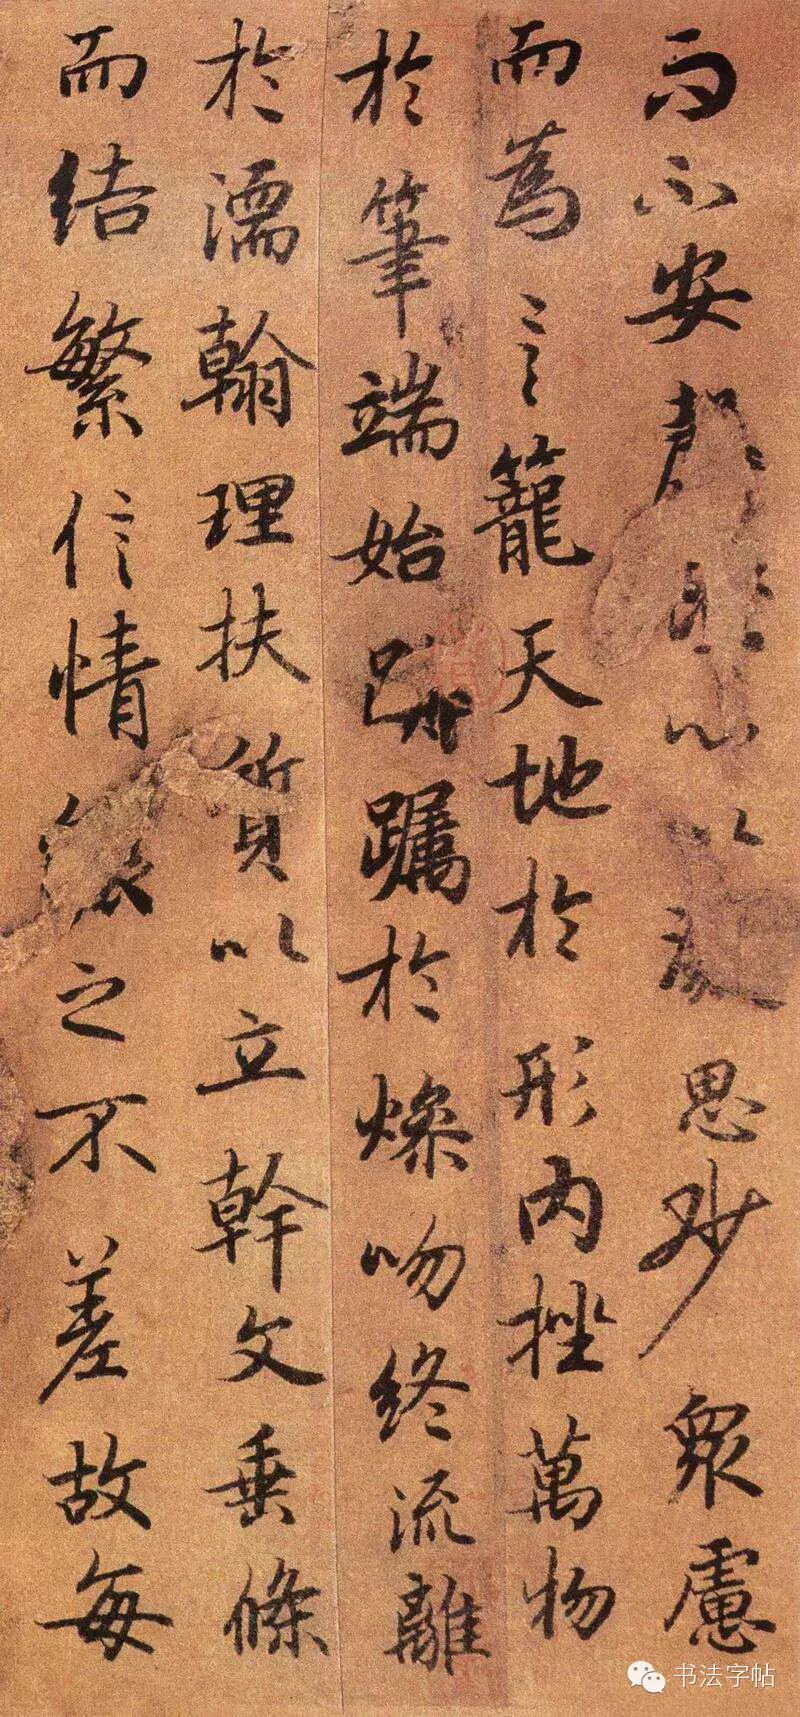 而不安心以思眇眾慮
而為言籠天地於形內挫萬物
於筆端始躑躅於燥吻終流離
於濡翰理扶質以立幹文垂條
而結繁信情之不差故每
书法字帖